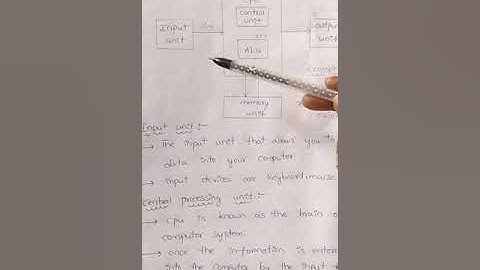 CPU
control
unit
Input
unit
ALU
output
unit
memory
unit
Input unit:-
→ The input unit that allows you to
data into your computer
→ input devices are keyboard, mouse
central processing unit:-
→ cpu is known as the brain o
computer system
→ once the information is entere
into the computer by the input